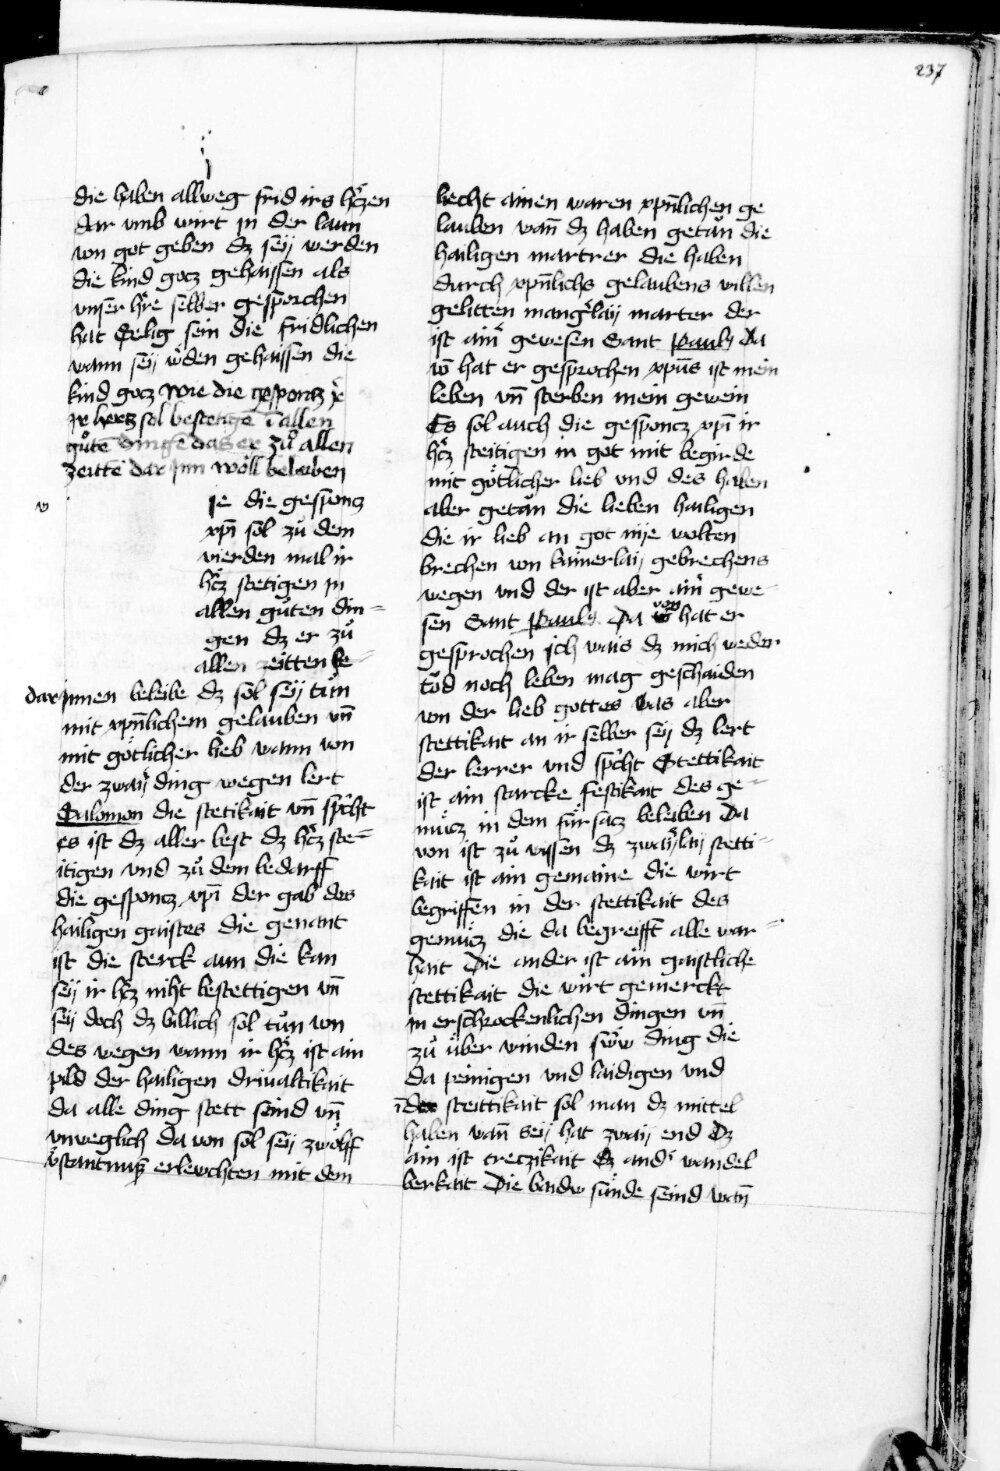 237
die haben allweg frid irs hʼczen
dar vmb wirt in der laun
von got geben dz seÿ werden
die kind gocz gehaissen als
vnser hʼre selber gesprochen
hat Selig sein die fridlichen
wann seÿ wʼden gehaissen die
kind gocz Wie die gesponcz
ir hertz sol bestetigē ī allen
gůtē dingē das er zů allen
zeittē dar Jnn wöll beleiben
v
ie die gesponcz
xpī sol zů dem
vierden mal ir
hʼcz stetigen in
allen gůten din=
gen dz er zů
allen zeitten
dar jnnen beleibe dz sol seÿ tůn
mit xpn̄lichem gelauben vn̄
mit götlicher lieb wann von
der zwaiʼ ding wegen lert
Salomon die stetikait vn̄ spʼcht
es ist dz aller best dz hʼcz ste=
itigen vnd zů dem bedarff
die gesponcz xpī der gab des
hailigen gaistes die genant
ist die sterck aun die kan
seÿ ir hʼcz niht bestettigen vn̄
seÿ doch dz billich sol tůn von
des wegen wann ir hʼcz ist ain
pild der hailigen driualtikait
da alle ding stett seind vn̄
vnweglich Da von sol seÿ zwölff
vʼstantnuß erlewchten mit dem
liecht ainen waren xpn̄lichen ge
lauben wan̄ dz haben getǎn die
hailigen martrer die haben
durch xpn̄lichs gelaubens willen
gelitten mangʼlaÿ marter der
ist ainʼ gewesen Sant Pauls Da
vō hat er gesprochen xpūs ist mein
leben vn̄ sterben mein gewein
Es sol auch die gesponcz xpī ir
hʼcz steitigen in got mit begirde
mit götlicher lieb vnd des haben
aber getǎn die lieben hailigen
die ir lieb an got nÿe wolten
brechen von kainerlaÿ gebrechens
wegen vnd der ist aber ainʼ gewe=
sen Sant Pauls Da von hat er
gesprochen ich wais dz mich weder
tod noch leben mag geschaiden
von der lieb gottes Was aber
stettikait an ir selber seÿ dz lert
der lerrer vnd spʼcht Stettikait
ist ain starcke festikait des ge=
mücz in dem fürsacz beleiben Da
von ist zů wissen dz zwaÿʼlaÿ stetti=
kait ist ain gemaine die wirt
begriffen in der stettikait des
gemücz die da begreifft alle war=
hait Die ander ist ain gaistliche
stettikait die wirt gemerckt
in erschrockenlichen dingen vn̄
zů über winden swär ding die
da peinigen vnd laidigen vnd
ī der steittikait sol man dz mittel
haben wan̄ seÿ hat zwaÿ end Dz
ain ist treczikait Dz andʼ wandel
berkait Die baide sünde seind wan̄